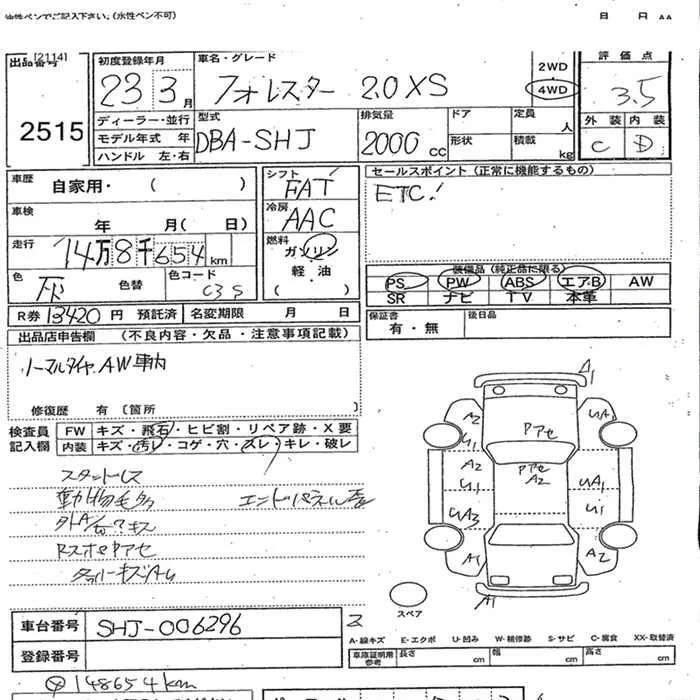 油性ペンでご記入下さい。(水性ペン不可) 月 日 AA
出品番号 [2114]
2515
初度登録年月 23 3 月
車名・グレード フォレスター 2.0XS
2WD
4WD
評価点 3.5
外装 内装
C D
ディーラー・並行
モデル年式 年
ハンドル 左・右
型式 DBA-SHJ
排気量 2000 cc
ドア
形状
定員 人
積載 kg
車歴 自家用・ ( )
車検 年 月( 日)
走行 14万8千654 km
色 灰 色替
色コード C3S
R券 13420 円 預託済 名変期限 月 日
シフト FAT
冷房 AAC
燃料 ガソリン
軽・油
( )
セールスポイント (正常に機能するもの)
ETC!
装備品 (純正品に限る)
PS PW ABS エアB AW
SR ナビ TV 本革
保証書 有・無
後日品
出品店申告欄 (不良内容・欠品・注意事項記載)
ノーマルタイヤ、AW車内
修復歴 有 〔箇所 〕
検査員記入欄
FW キズ・飛石・ヒビ割・リペア跡・X要
内装 キズ・汚レ・コゲ・穴・スレ・キレ・破レ
スタッドレス
動物毛多 エンドパネル歪
Rスポ Pアセ
A1
A2 U1 UA1
Pアセ
A2 Pアセ A2 UA1
U1 U1
UA3
A1 A2
A1
スペア
車台番号 SHJ-006296
登録番号
A-線キズ E-エクボ U-凹み W-補修跡 S-サビ C-腐食 XX-取替済
車庫証明用参考 長さ cm 幅 cm 高さ cm
148654km